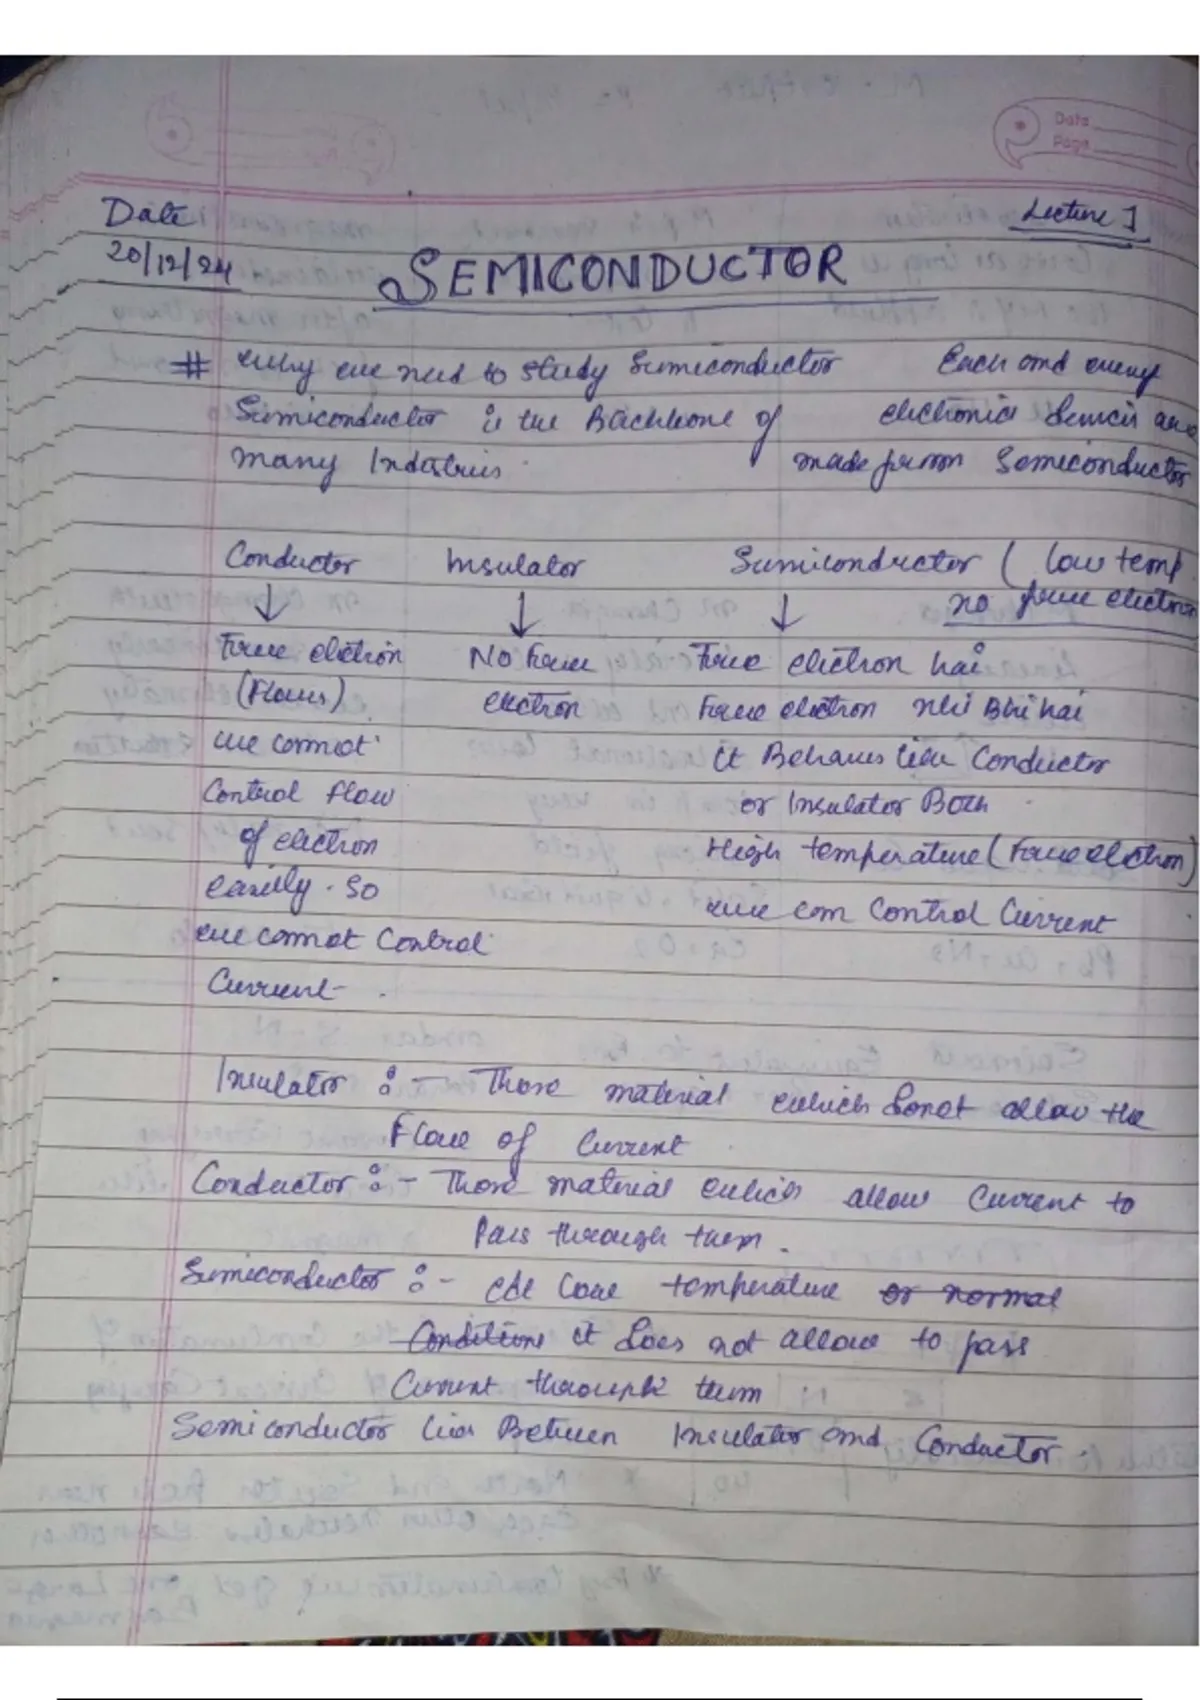 Data
Page
Date
Lecture 1
20/12/24
SEMICONDUCTOR
# why we need to study Semiconductor
Semiconductor is the Backbone of
many Industries
Each and every
electronics devices are
made from Semiconductor
Conductor
↓
Free electron
(Flows)
we cannot
Control flow
of electron
easily. So
we cannot Control
Current
Insulator
↓
No Free
electron
Semiconductor ( low temp
no free electron
↓
Free electron hai
Free electron nhi Bhi hai
it Behaves like Conductor
or Insulator Both
High temperature (Free electron)
we can Control Current
Insulator :- Those material which donot allow the
Flow of Current
Conductor :- Those material which allow Current to
Pass through them.
Semiconductor :- At low temperature or normal
Conditions it does not allow to pass
Current through them
Semiconductor lies Between Insulator and Conductor.